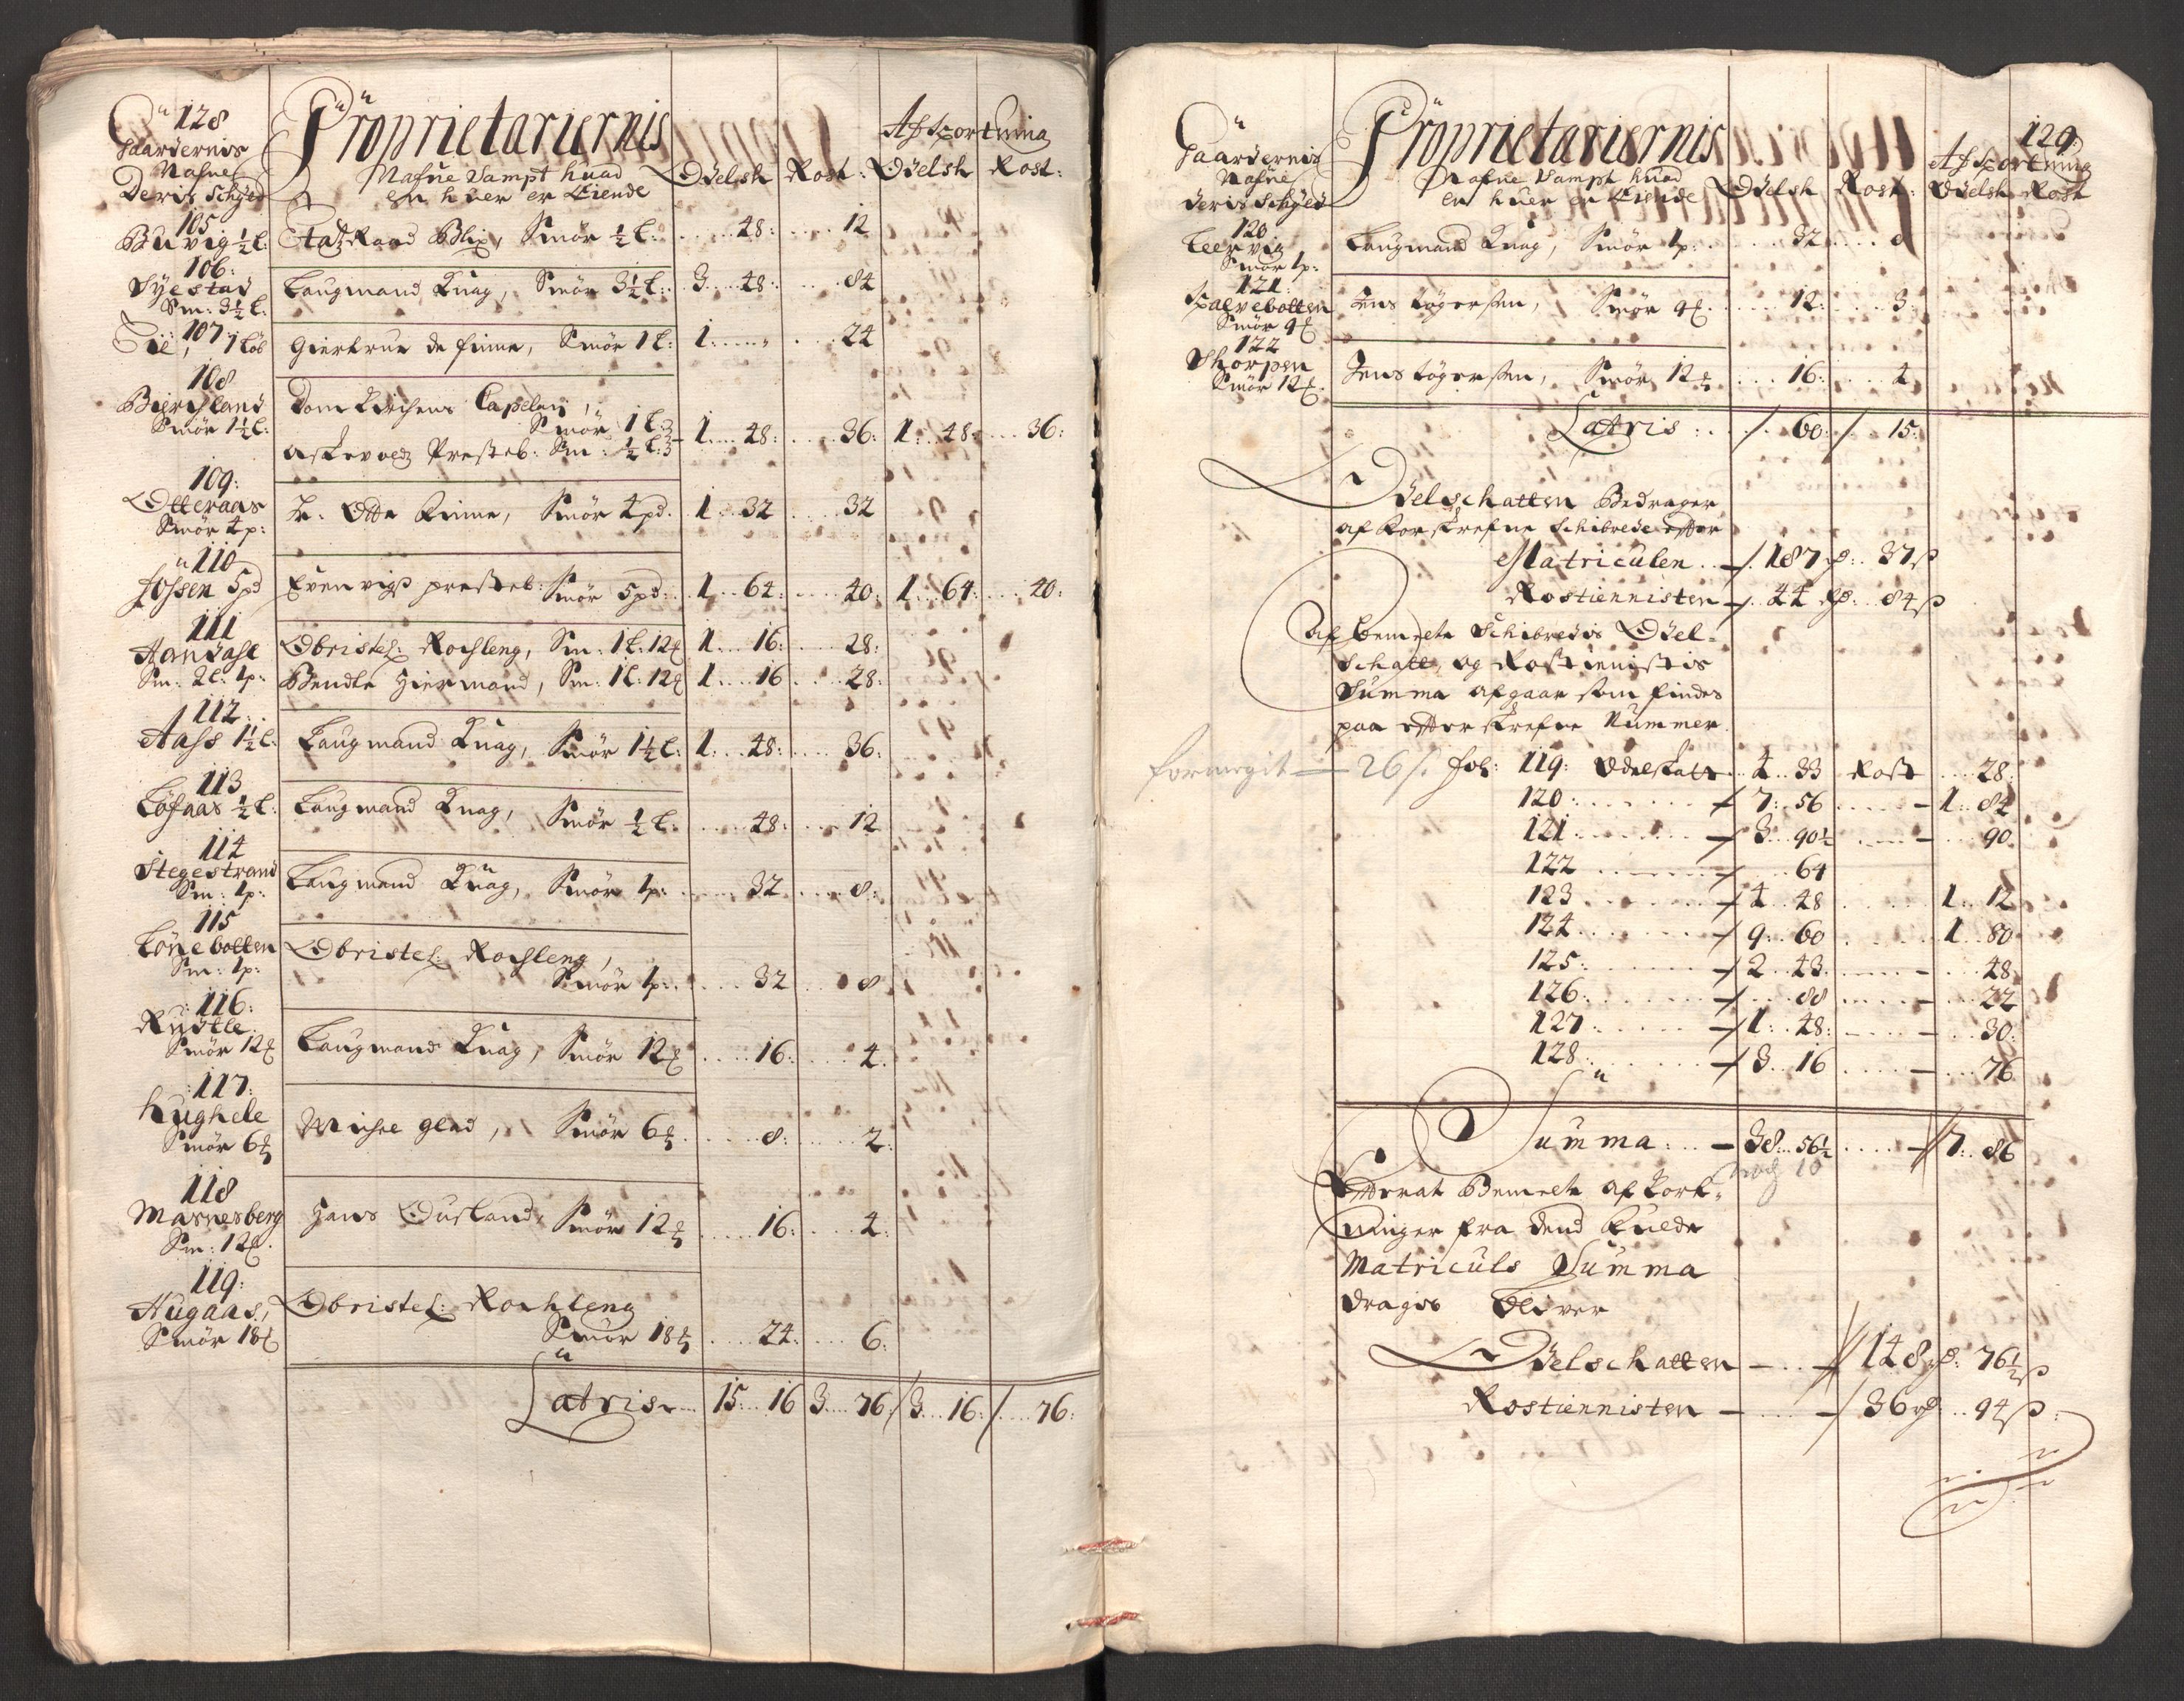 128
Gaardernis
Nafne
Deris Schyld
Proprietariernis
Nafne Sampt huad
en huer er Eiende
Odelsk Rost: Afkortning
Odelsk Rost:
105
Buvig ½ l: Etatz Raad Blix, Smör ½ l: 48: 12
106:
Syestad
Sm: 3½ l: Laugmand Knag, Smör 3½ l: 3 48: 84
107
1 löb Giertrue de fine, Smör 1 l: 1 24
108
Bierchland
Smör 1½ l: Domkirchens Capelan,
Smör 1 l:
Askevolds Presteb: Sm: ½ l: 1 48: 36: 1 48: 36:
109:
Otteraas
Smör 4 p: Otte Rinne, Smör 4 pd. 1 32 32
110
5 pd Evenvigs presteb: Smör 5 pd: 1 64: 40: 1 64: 40:
111
Aandahl Obristel: Rochleng, Sm: 1 l: 12 1 16: 28:
Sm: 2 l: 1 p: Bendte Giermand, Sm: 1 l: 12 1 16 28:
112:
Aass 1½ l: Laugmand Knag, Smör 1½ l: 1 48: 36:
113
Löfaas ½ l: Laugmand Knag, Smör ½ l: 48: 12
114
Stegestrand
Sm: 1 p: Laugmand Knag, Smör 1 p: 32 8:
115
Lönebotten
Sm: 1 p: Obristel: Rochleng,
Smör 1 p: 32 8
116:
Rysdtle
Smör 12 Laugmand Knag, Smör 12 16: 4:
117:
Hughele
Smör 6 glad, Smör 6 8: 2:
118
Masnesberg
Sm: 12 Hans Dusland, Smör 12 16: 4:
119:
Augaas,
Smör 18 Obristel: Rochleng
Smör 18 24: 6:
Latris 15 16 3 76 3 16: 76:
129
Gaardernis
Nafne
deris Schyld
Proprietariernis
Nafne Sampt huad
en huer er Eiende
Odelsk Rost: Afkortning
Odelsk Rost
120
Leervig
Smör 1 p: Laugmand Knag, Smör 1 p: 32 8
121:
Kalvebotten
Smör 9 Jens tögersen, Smör 9 12: 3:
122
Skorpen
Smör 12 Jens tögersen, Smör 12 16: 4
Latris: 60: 15:
Odelschatten Bedrager
af forskrefne Schibrede efter
Matriculen 187 37
Rostiennisten 44 84
Af bemelte Schibredis Odel-
Schatt, og Rostiennistis
Summa afgaar som findes
paa efterskrefne Nummer
26 fol: 119: Odelskatt 4 33 Rost 28:
120: 7: 56 1: 84
121 3 90½ 90
122 64
123 4 48 1 12
124 9 60 1 80
125: 2 43: 48
126 88 22
127 1: 48: 30:
128 3 16 76
Summa: 38: 56½ 7: 86
10
Bemelte afkort-
ninger fra dend fulde
Matriculs Summa
dragis bliver
Odelschatten 148 76½
Rostiennisten 36 94